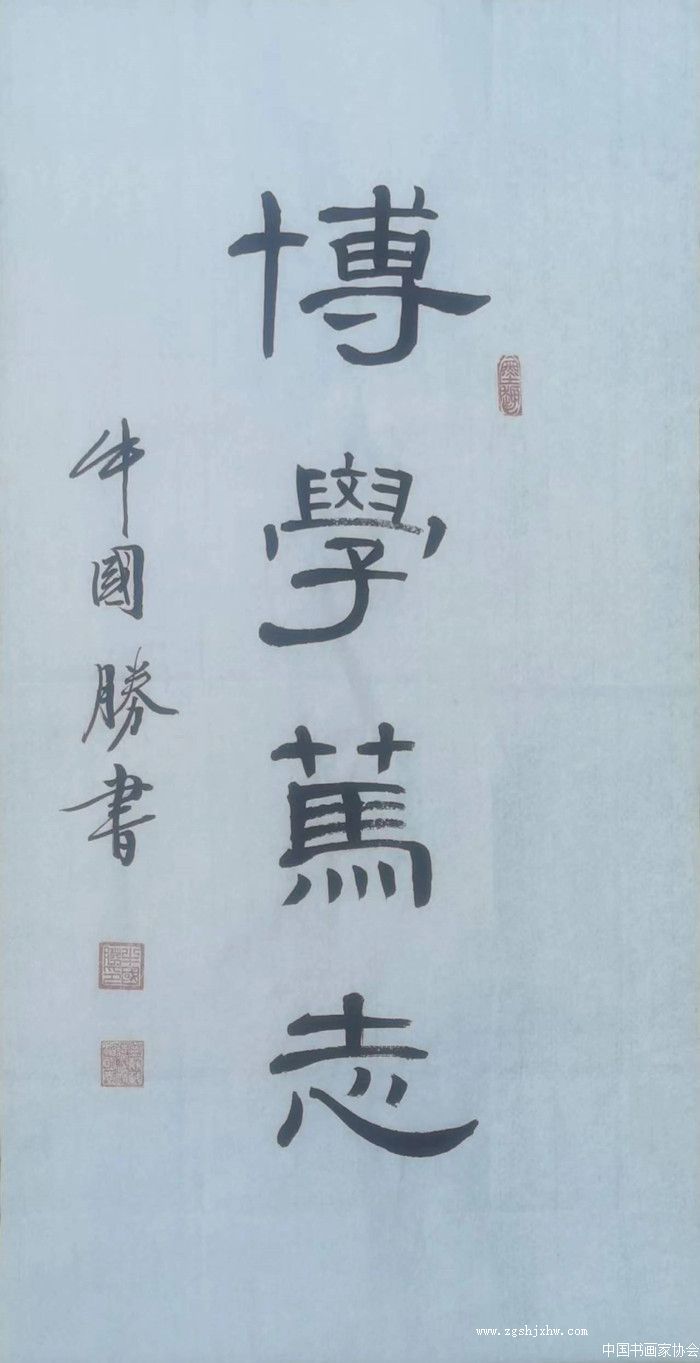 博學篤志
牛國勝書
www.zgshjxhw.com
中国书画家协会